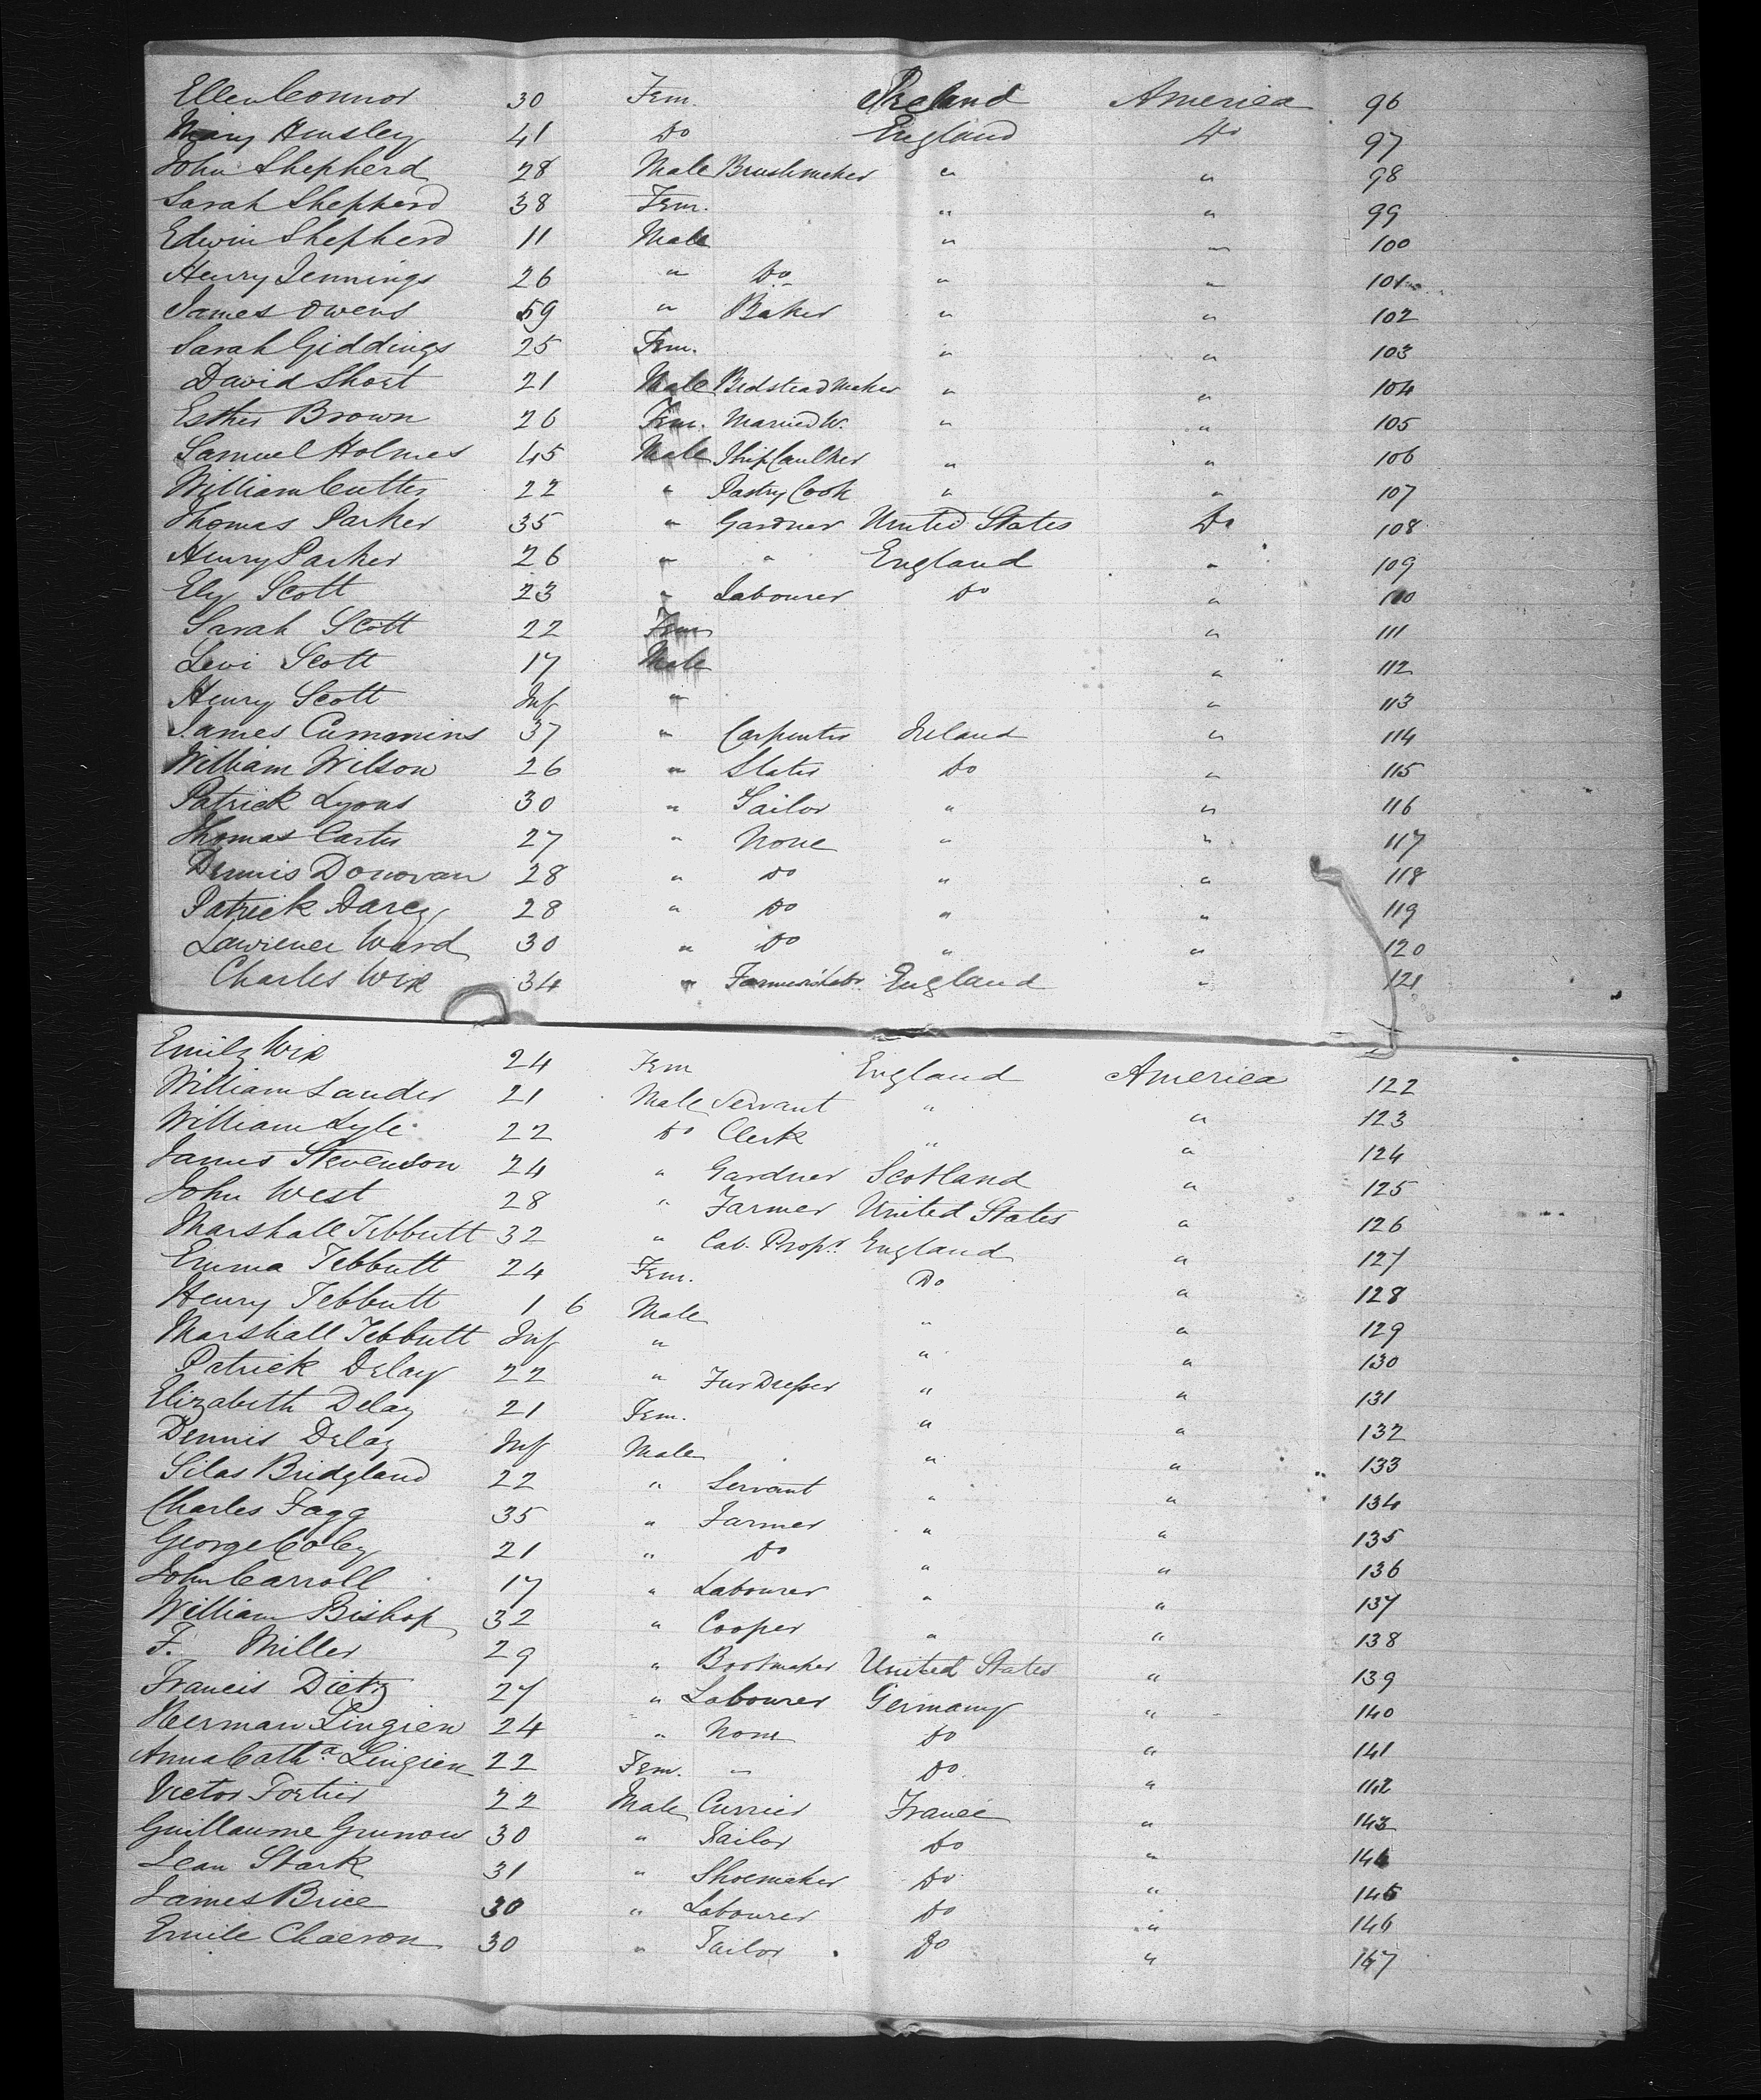 Ellen Connor 30 Fem. Ireland America 96
Mary Hensley 41 Do England Do 97
John Shepherd 28 Male Brushmaker " " 98
Sarah Shepherd 38 Fem. " " 99
Edwin Shepherd 11 Male " " 100
Henry Jennings 26 " Do " " 101
James Owens 59 " Baker " " 102
Sarah Giddings 25 Fem. " " 103
David Short 21 Male Bedstead Maker " " 104
Esther Brown 26 Fem. Married W. " " 105
Samuel Holmes 45 Male Ship Caulker " " 106
William Cutter 22 " Pastry Cook " " 107
Thomas Parker 35 " Gardner United States Do 108
Henry Parker 26 " " England " 109
Ely Scott 23 " Labourer Do " 110
Sarah Scott 22 Fem " 111
Levi Scott 17 Male " 112
Henry Scott Inf " " 113
James Cummins 37 " Carpenter Ireland " 114
William Wilson 26 " Slater Do " 115
Patrick Lyons 30 " Sailor " " 116
Thomas Carter 27 " None " " 117
Dennis Donovan 28 " Do " " 118
Patrick Darcy 28 " Do " " 119
Lawrence Ward 30 " Do " " 120
Charles Wix 34 " Farmer's Labr England " 121
Emily Wix 24 Fem England America 122
William Lauder 21 Male Servant " " 123
William Lyle 22 Do Clerk " " 124
James Stevenson 24 " Gardner Scotland " 125
John West 28 " Farmer United States " 126
Marshall Tebbutt 32 " Cab. Propr. England " 127
Emma Tebbutt 24 Fem. Do " 128
Henry Tebbutt 1 6 Male " " 129
Marshall Tebbutt Inf " " " 130
Patrick Delay 22 " Fur Dresser " " 131
Elizabeth Delay 21 Fem. " " 132
Dennis Delay Inf Male " " 133
Silas Bridgland 22 " Servant " " 134
Charles Fagg 35 " Farmer " " 135
George Coley 21 " Do " " 136
John Carroll 17 " Labourer " " 137
William Bishop 32 " Cooper " " 138
F. Miller 29 " Bootmaker United States " 139
Francis Dietz 27 " Labourer Germany " 140
Herman Lingien 24 " None Do " 141
Anna Catha Lingien 22 Fem. " Do. " 142
Victor Fortier 22 Male Currier France " 143
Guillaume Grunow 30 " Tailor Do " 144
Jean Stark 31 " Shoemaker Do " 145
James Brice 30 " Labourer Do " 146
Emile Chaeron 30 " Tailor Do " 147